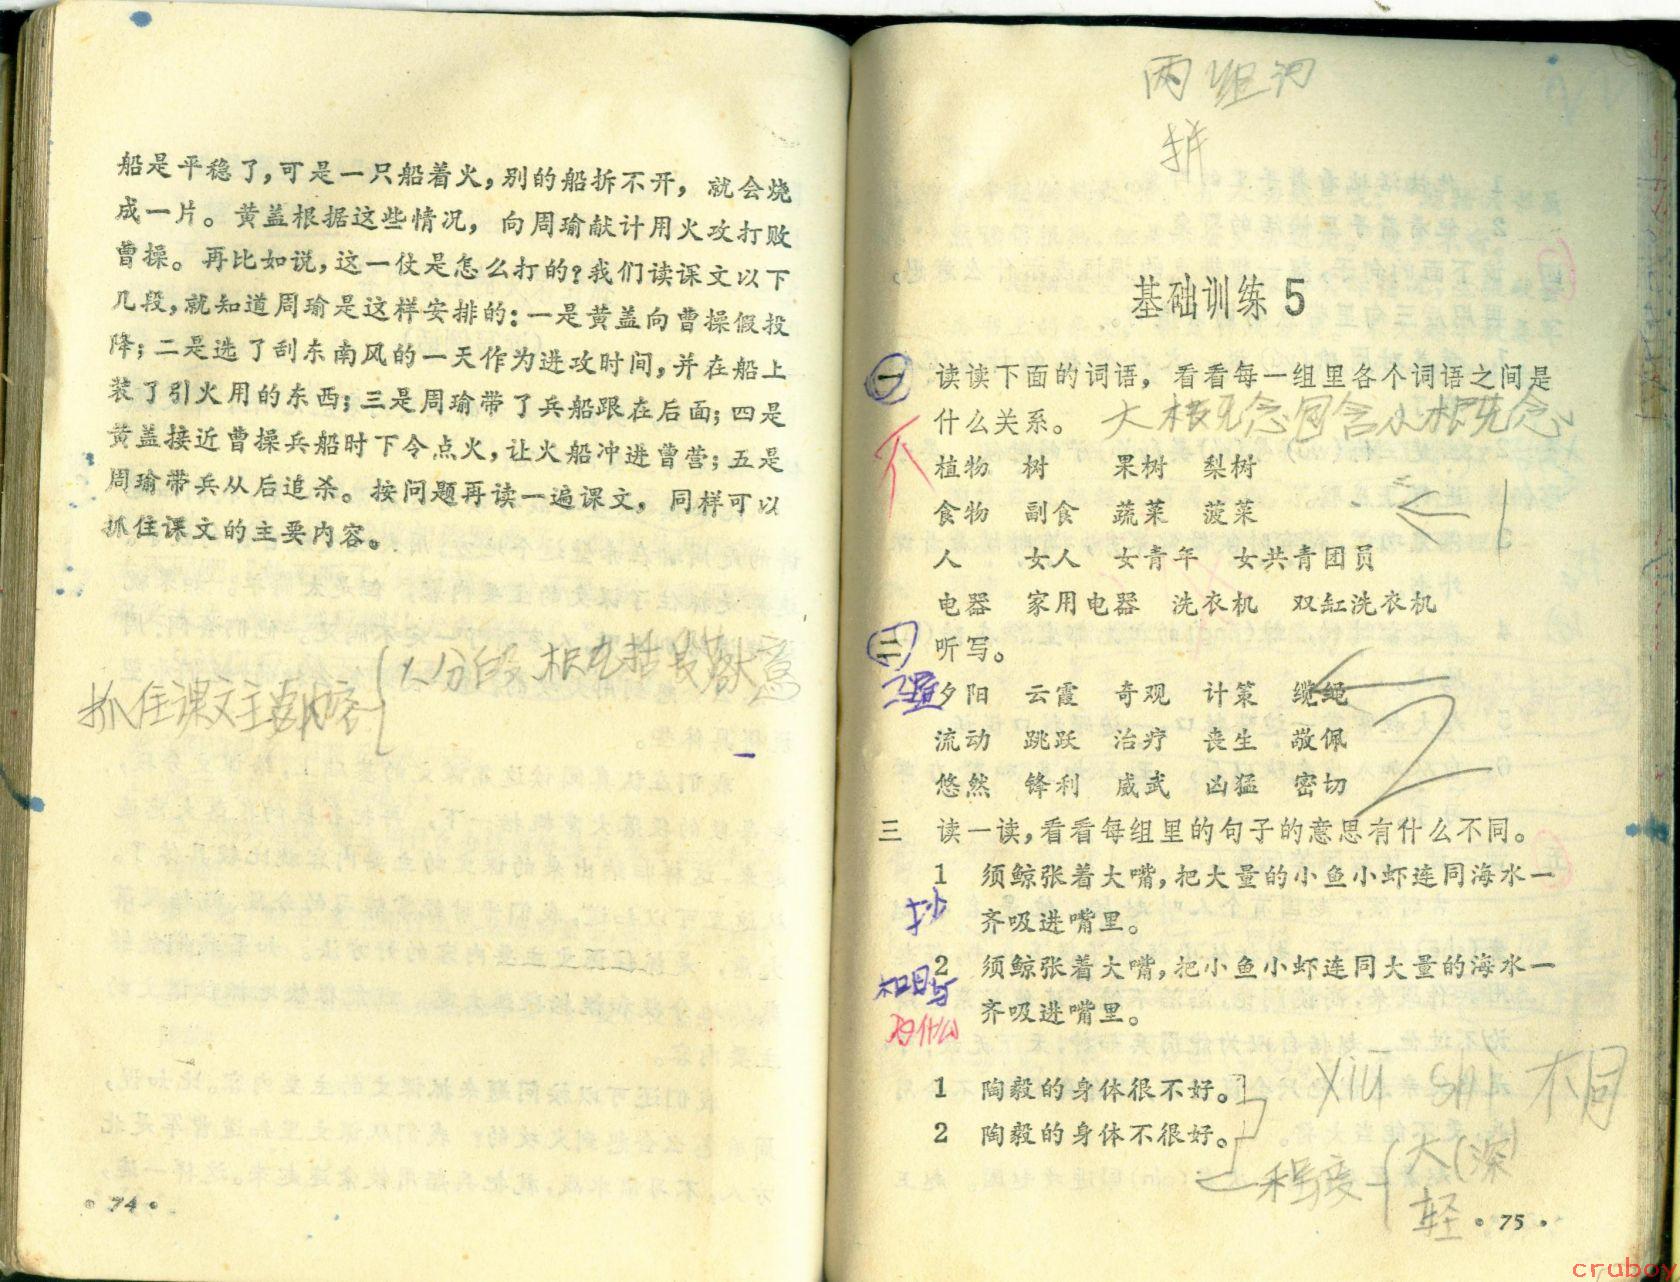 船是平稳了,可是一只船着火,别的船拆不开，就会烧
成一片。黄盖根据这些情况，向周瑜献计用火攻打败
曹操。再比如说,这一仗是怎么打的?我们读课文以下
几段,就知道周瑜是这样安排的:一是黄盖向曹操假投
降;二是选了刮东南风的一天作为进攻时间,并在船上
装了引火用的东西;三是周瑜带了兵船跟在后面;四是
黄盖接近曹操兵船时下令点火,让火船冲进曹营;五是
周瑜带兵从后追杀。按问题再读一遍课文，同样可以
抓住课文的主要内容。
抓住课文主要内容
•74•
两组词
拼
基础训练5
一 读读下面的词语，看看每一组里各个词语之间是
什么关系。大概念包含小概念
植物 树 果树 梨树
食物 副食 蔬菜 菠菜
人 女人 女青年 女共青团员
电器 家用电器 洗衣机 双缸洗衣机
二 听写。
夕阳 云霞 奇观 计策 缆绳
流动 跳跃 治疗 丧生 敬佩
悠然 锋利 威武 凶猛 密切
三 读一读,看看每组里的句子的意思有什么不同。
1 须鲸张着大嘴,把大量的小鱼小虾连同海水一
抄
齐吸进嘴里。
2 须鲸张着大嘴,把小鱼小虾连同大量的海水一
齐吸进嘴里。
为什么
1 陶毅的身体很不好。
不同
2 陶毅的身体不很好。
程度 大(深)
轻
•75•
cruboy